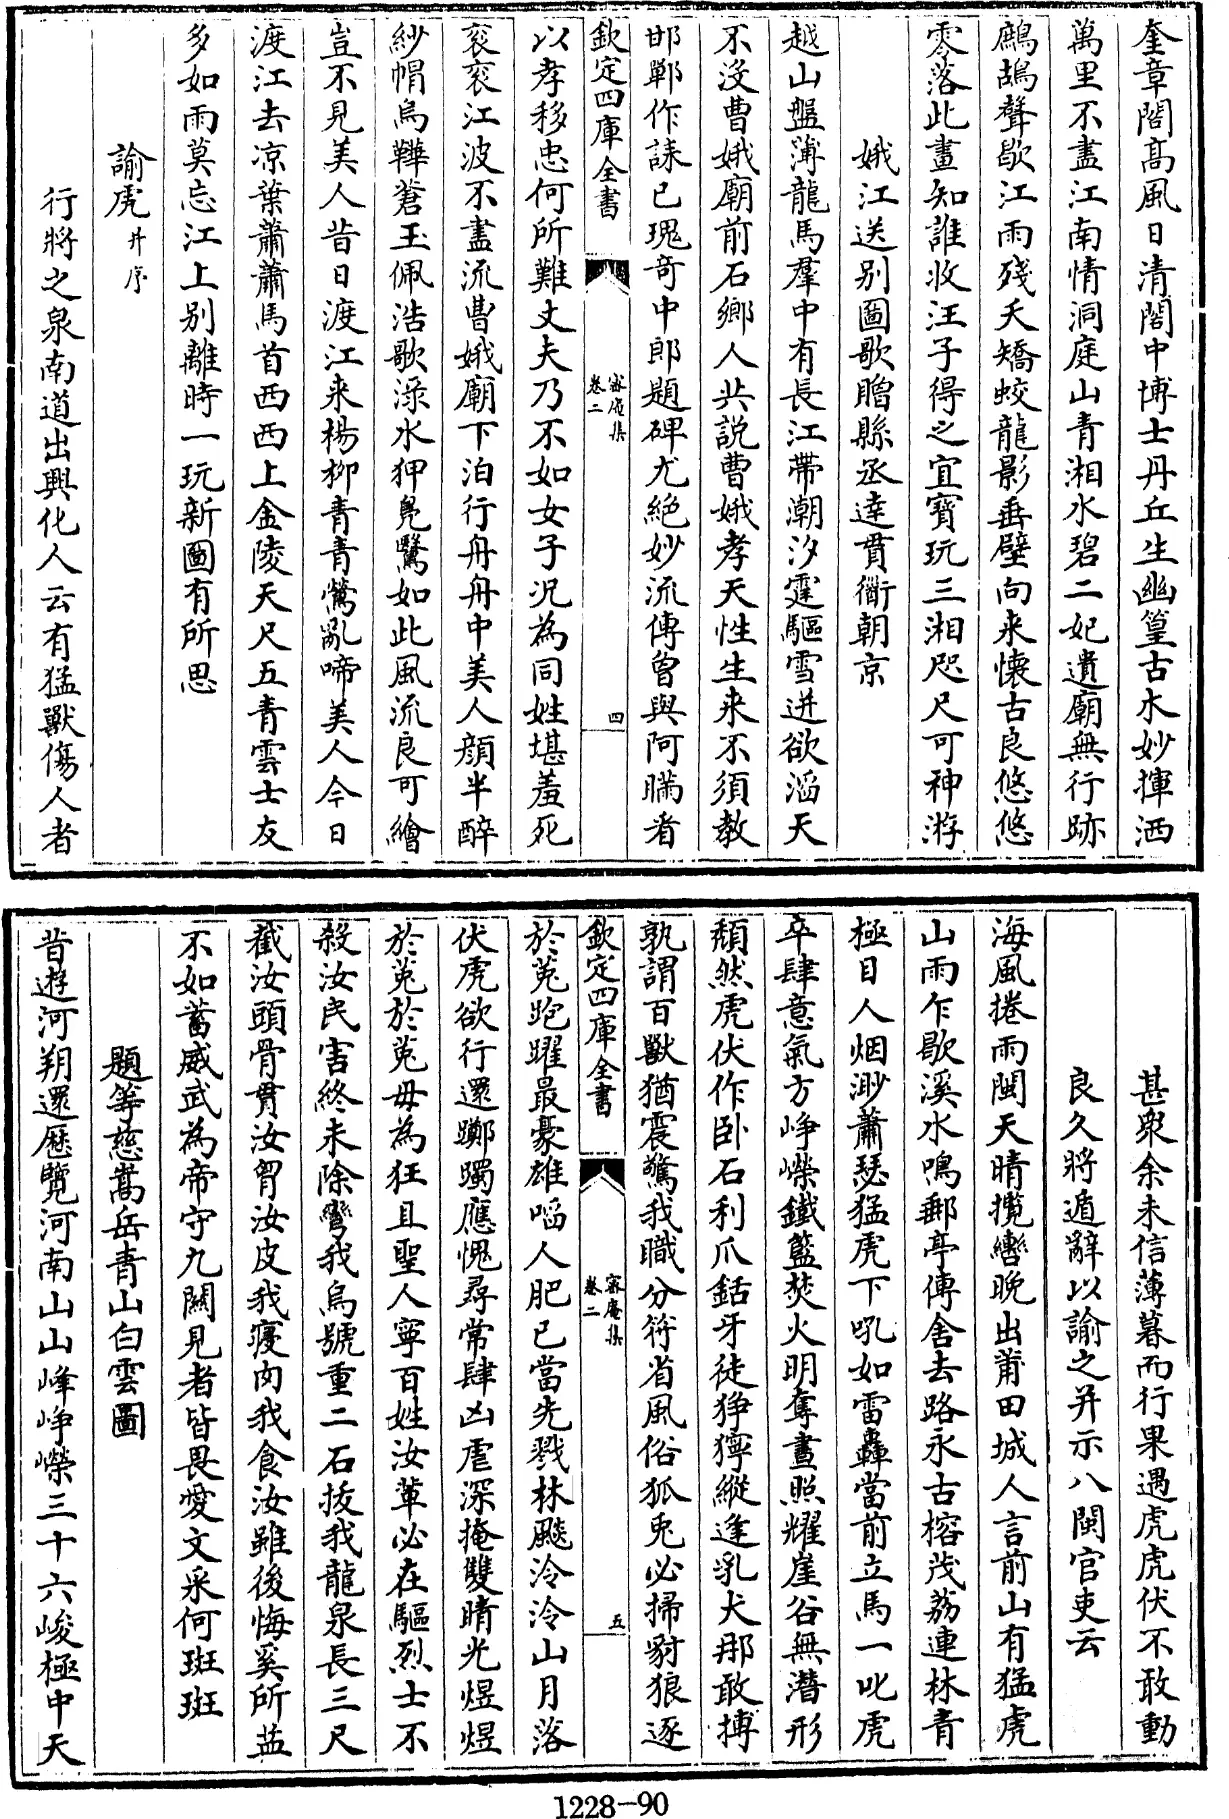 奎章閣高風日清閣中博士丹丘生幽篁古木妙揮洒
萬里不盡江南情洞庭山青湘水碧二妃遺廟無行跡
鷓鴣聲歇江雨殘夭矯蛟龍影垂壁向来懐古良悠悠
零落此畫知誰收汪子得之宜寳玩三湘咫尺可神游
娥江送别圖歌贈縣丞逹貫衟朝京
越山盤薄龍馬羣中有長江帶潮汐霆驅雪迸欲滔天
不没曹娥廟前石鄉人共說曹娥孝天性生来不須教
邯鄲作誄已瑰竒中郎題碑尤絶妙流傳曾與阿瞞看
欽定四庫全書
宻庵集
卷二
四
以孝移忠何所難丈夫乃不如女子况為同姓堪羞死
衮衮江波不盡流曹娥廟下泊行舟舟中美人顔半醉
紗帽烏鞾蒼玉佩浩歌渌水狎鳧鷖如此風流良可繪
豈不見美人昔日渡江来楊栁青青鶯亂啼美人今日
渡江去凉葉蕭蕭馬首西西上金陵天尺五青雲士友
多如雨莫忘江上别離時一玩新圖有所思
諭虎并序
行將之泉南道出興化人云有猛獸傷人者
甚衆余未信薄暮而行果遇虎虎伏不敢動
良久將遁辭以諭之并示八閩官吏云
海風捲雨閩天晴攬轡晚出莆田城人言前山有猛虎
山雨乍歇溪水鳴郵亭傳舍去路永古榕茂荔連林青
極目人烟渺蕭瑟猛虎下吼如雷轟當前立馬一叱虎
卒肆意氣方崢嶸鐵籃焚火明奪晝照耀崖谷無潛形
頽然虎伏作卧石利爪銛牙徒猙獰縱逢乳犬那敢搏
孰謂百獸猶震驚我職分符省風俗狐兎必掃豺狼逐
欽定四庫全書
宻庵集
卷二
五
於莵跑躍最豪雄啗人肥已當先戮林飈泠泠山月落
伏虎欲行還躑躅應愧尋常肆凶虐深掩雙睛光煜煜
於莵於莵毋為狂且聖人寧百姓汝軰必在驅烈士不
殺汝民害終未除彎我烏號重二石拔我龍泉長三尺
截汝頭骨貫汝胷汝皮我寢肉我食汝雖後悔奚所益
不如蓄威武為帝守九關見者皆畏愛文采何斑斑
題等慈嵩岳青山白雲圖
昔逰河朔還歴覽河南山山峰崢嶸三十六峻極中天
1228-90